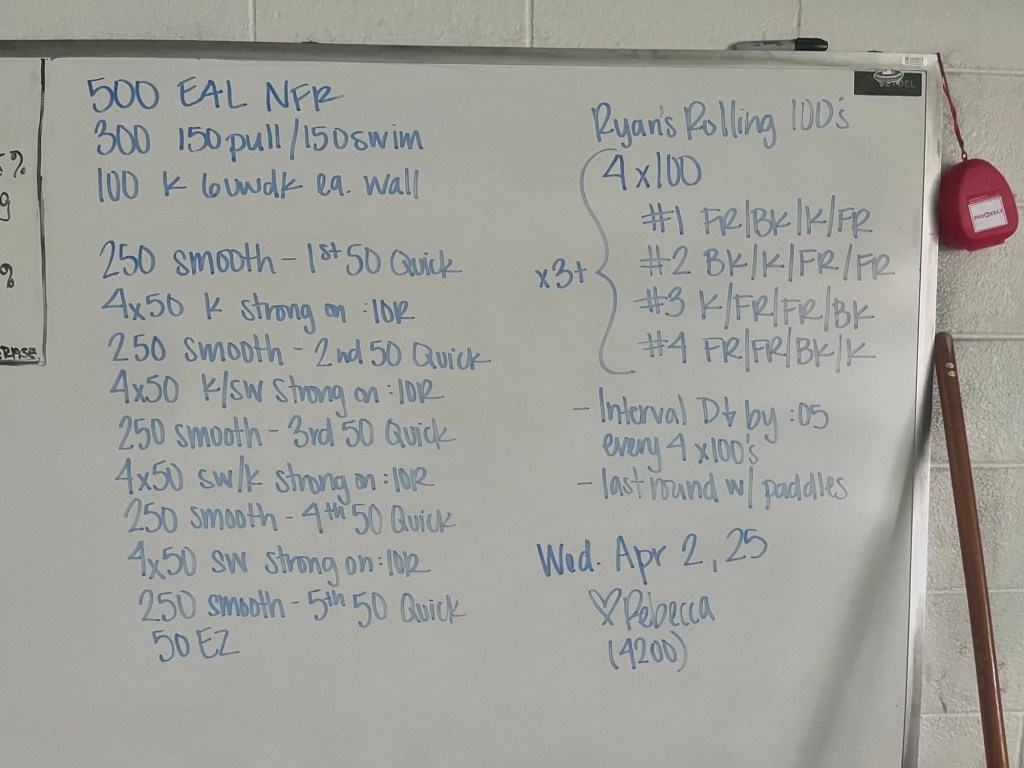 500 E4L NFR
300 150 pull/150 swim
100 K 6uwdk ea. wall
250 smooth - 1st 50 Quick
4x50 K strong on :10R
250 smooth - 2nd 50 Quick
4x50 K/SW strong on :10R
250 smooth - 3rd 50 Quick
4x50 SW/K strong on :10R
250 smooth - 4th 50 Quick
4x50 SW strong on :10R
250 smooth - 5th 50 Quick
50 EZ
Ryan's Rolling 100's
4x100
#1 FR/BK/K/FR
#2 BK/K/FR/FR
x3+
#3 K/FR/FR/BK
#4 FR/FR/BK/K
- Interval D↓ by :05
every 4x100's
- last round w/ paddles
Wed. Apr 2, 25
♡Rebecca
(4200)
%
g
%
ERASE